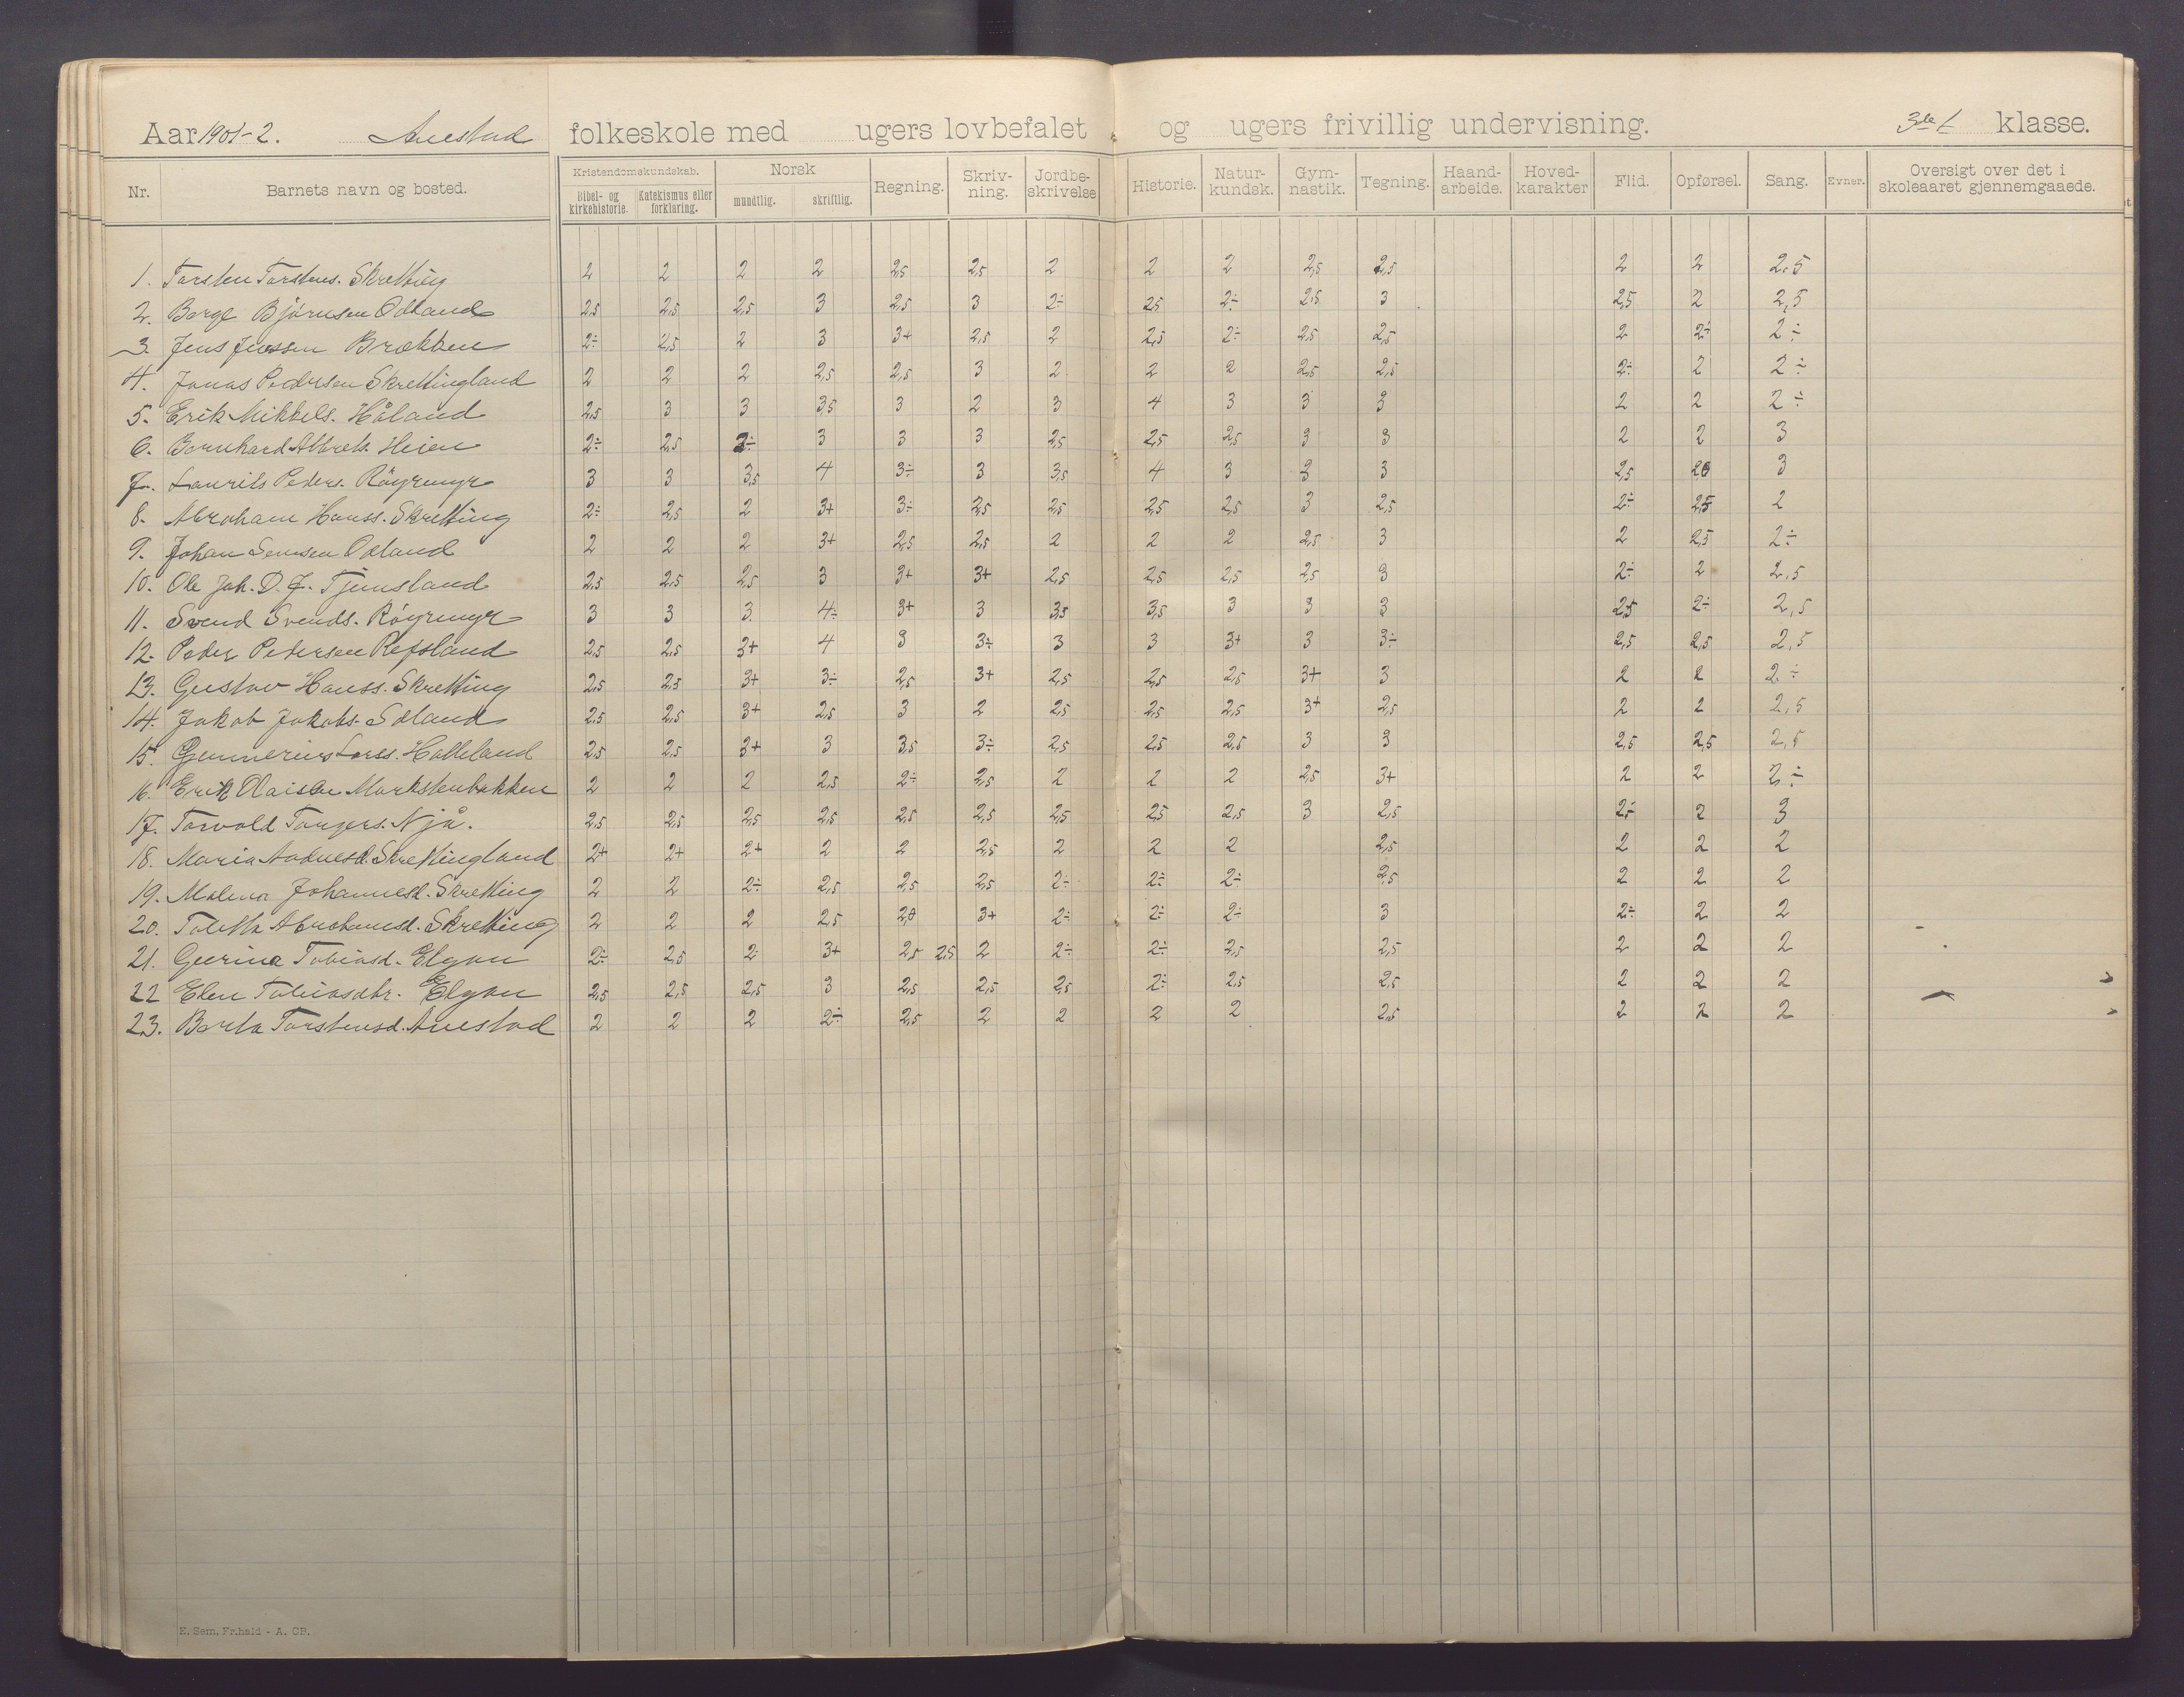 Aar 1901-2. Auestad folkeskole med ugers lovbefalet og ugers frivillig undervisning. 3die klasse.
Nr. Barnets navn og bosted. Kristendomskundskab. Bibel- og kirkehistorie. Katekismus eller forklaring. Norsk mundtlig. skriftlig. Regning. Skriv-ning. Jordbe-skrivelse Historie. Natur-kundsk. Gym-nastik. Tegning. Haand-arbeide. Hoved-karakter Flid. Opførsel. Sang. Evner. Oversigt over det i skoleaaret gjennemgaaede.
1. Torsten Torstens. Skretting 2 2 2 2 2,5 2,5 2 2 2 2,5 2,5 2 2 2,5
2. Borge Bjørnsen Ødland 2,5 2,5 2,5 3 2,5 3 2÷ 2,5 2÷ 2,5 3 2,5 2 2,5
3. Jens Jenssen Brækken 2÷ 2,5 2 3 3+ 2,5 2 2,5 2÷ 2,5 2,5 2 2÷ 2÷
4. Jonas Pedersen Skrettingland 2 2 2 2,5 2,5 3 2 2 2 2,5 2,5 2÷ 2 2÷
5. Erik Mikkels. Håland 2,5 3 3 3,5 3 2 3 4 3 3 3 2 2 2÷
6. Bernhard Albrets. Heien 2÷ 2,5 2÷ 3 3 3 2,5 2,5 2,5 3 3 2 2 3
7. Laurits Peders. Röyrmyr 3 3 3,5 4 3÷ 3 3,5 4 3 3 3 2,5 2,5 3
8. Abraham Hanss. Skretting 2÷ 2,5 2 3+ 3÷ 2,5 2,5 2,5 2,5 3 2,5 2÷ 2,5 2
9. Johan Semsen Ødland 2 2 2 3+ 2,5 2,5 2 2 2 2,5 3 2 2,5 2÷
10. Ole Joh. D. J. Tjemsland 2,5 2,5 2,5 3 3+ 3+ 2,5 2,5 2,5 2,5 3 2÷ 2 2,5
11. Svend Svends. Röyrmyr 3 3 3 4÷ 3+ 3 3,5 3,5 3 3 3 2,5 2÷ 2,5
12. Peder Pedersen Refsland 2,5 2,5 3+ 4 3 3÷ 3 3 3+ 3 3÷ 2,5 2,5 2,5
13. Gustav Hanss. Skretting 2,5 2,5 3+ 3÷ 2,5 3+ 2,5 2,5 2,5 3+ 3 2 2 2÷
14. Jakob Jakobs. Ødland 2,5 2,5 3+ 2,5 3 2 2,5 2,5 2,5 3+ 2,5 2 2 2,5
15. Gunnerius Larss. Holleland 2,5 2,5 3+ 3 3,5 3÷ 2,5 2,5 2,5 3 3 2,5 2,5 2,5
16. Erik Olaisen Markstenbakken 2 2 2 2,5 2÷ 2,5 2 2 2 2,5 3+ 2 2 2÷
17. Torvald Torgers. Njå. 2,5 2,5 2,5 2,5 2,5 2,5 2,5 2,5 2,5 3 2,5 2÷ 2 3
18. Maria Aadnesd. Skrettingland 2+ 2+ 2+ 2 2 2,5 2 2 2 2,5 2 2 2
19. Malena Johannesd. Skretting 2 2 2÷ 2,5 2,5 2,5 2÷ 2÷ 2÷ 2,5 2 2 2
20. Tolitta Abrahamsd. Skretting 2 2 2 2,5 3+ 2÷ 2÷ 2÷ 3 2÷ 2 2
21. Gurina Tobiasd. Elgan 2÷ 2,5 2÷ 3+ 2,5 2,5 2 2÷ 2÷ 2,5 2,5 2 2 2
22 Elen Tobiasdtr. Elgan 2,5 2,5 2,5 3 2,5 2,5 2,5 2÷ 2,5 2,5 2 2 2
23. Berta Torstensd. Auestad 2 2 2 2÷ 2,5 2 2 2 2 2,5 2 2 2
E. Sem. Fr.hald - A. CB.